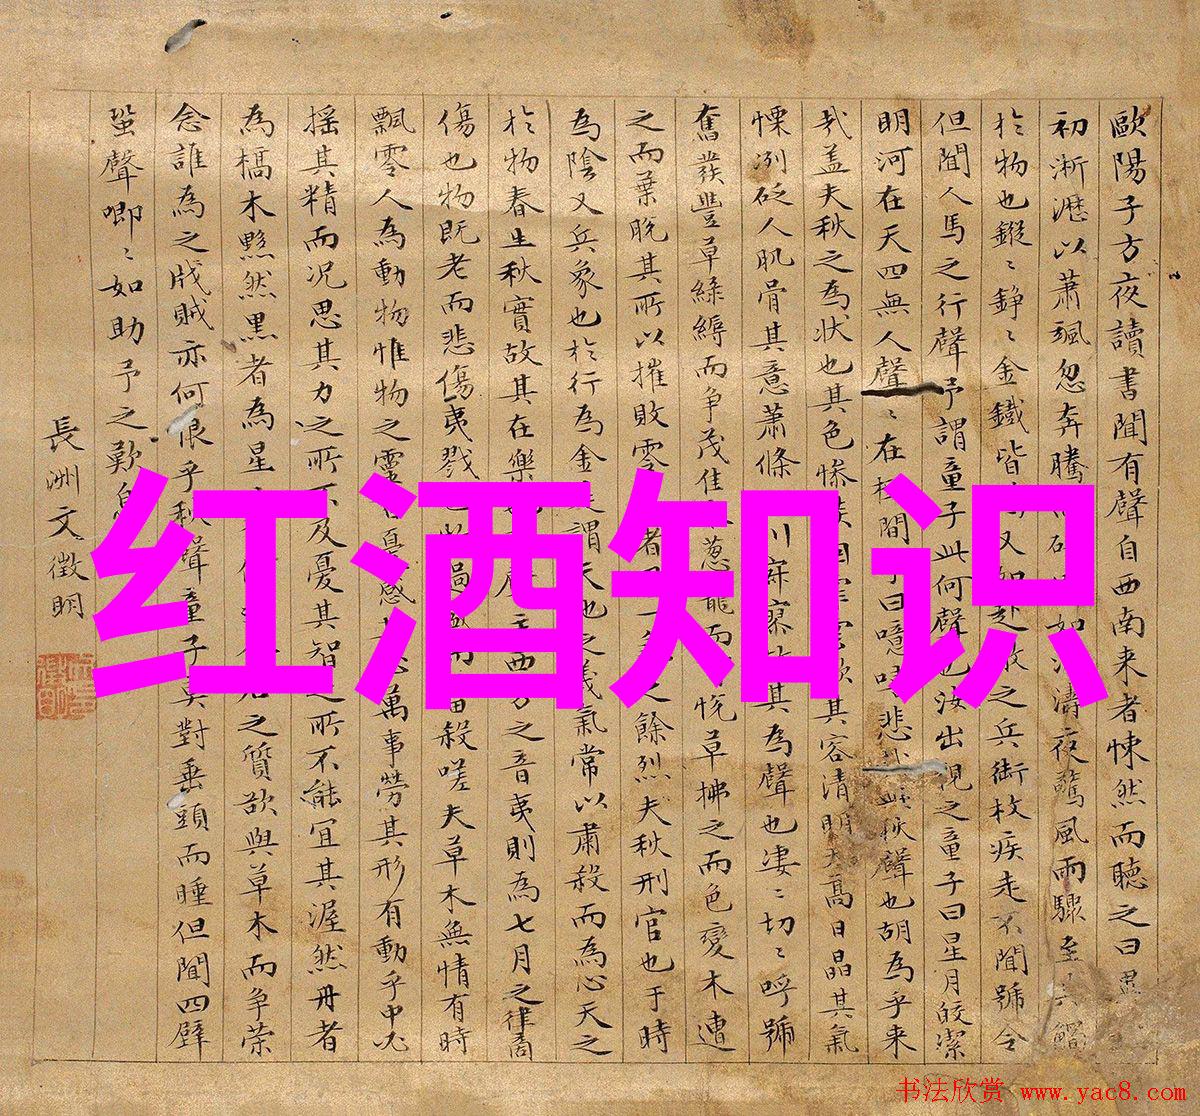 歐陽子方夜讀書聞有聲自西南来者悚然而聽之曰
初淅瀝以蕭颯忽奔騰砰如濤夜驚風雨驟至其觸
於物也鏦〻錚〻金鐵皆又如赴敵之兵銜枚疾走不聞號令
但聞人馬之行聲予謂童子此何聲也汝出視之童子曰星月皎潔
明河在天四無人聲〻在樹間予曰噫嘻悲哉此秋聲也胡為乎来
哉盖夫秋之為状也其色惨淡烟霏雲歛其容清明天高日晶其氣
慄冽砭人肌骨其意蕭條川寂寥故其為聲也凄〻切〻呼號
奮發豐草緑縟而争茂佳葱蘢而悦草拂之而色變木遭
之而葉脱其所以摧敗零者一之餘烈夫秋刑官也于時
為陰又兵象也於行為金是謂天地之義氣常以肅殺而為心天之
於物春生秋實故其在樂主西方之音夷則為七月之律商
傷也物既老而悲傷夷戮也物過盛而當殺嗟夫草木無情有時
飄零人為動物惟物之靈百憂感其心萬事勞其形有動乎中必
揺其精而况思其力之所不及憂其智之所不能宜其渥然丹者
為槁木黟然黒者為星石之質欲與草木而争荣
念誰為之戕賊亦何恨乎秋聲童子莫對垂頭而睡但聞四壁
蛩聲唧〻如助予之歎息
長洲文徵明
红酒知识
书法欣赏 www.yac8.com